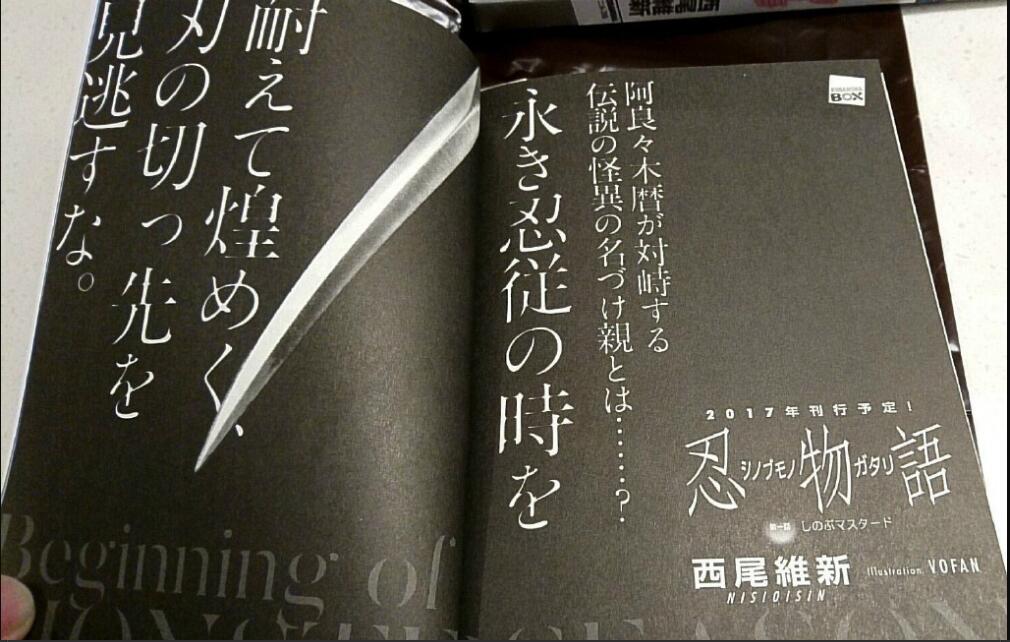 KODANSHA
BOX
阿良々木暦が対峙する
伝説の怪異の名づけ親とは……?
永き忍従の時を
耐えて煌めく、
刃の切っ先を
見逃すな。
2017年刊行予定!
忍物語
シノブモノガタリ
第一話 しのぶマスタード
西尾維新
NISIOISIN
Illustration VOFAN
Beginning of
西尾維新